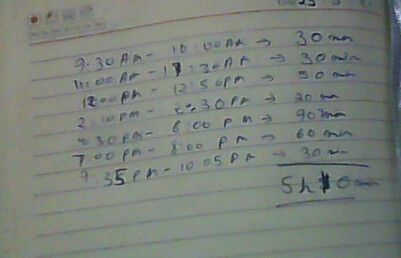 9:30 AM - 10:00 AM → 30 min
11:00 AM - 11:30 AM → 30 min
12:00 PM - 12:50 PM → 50 min
2:10 PM - 2:30 PM → 20 min
4:30 PM - 6:00 PM → 90 min
7:00 PM - 8:00 PM → 60 min
9:35 PM - 10:05 PM → 30 min
5h 10 min